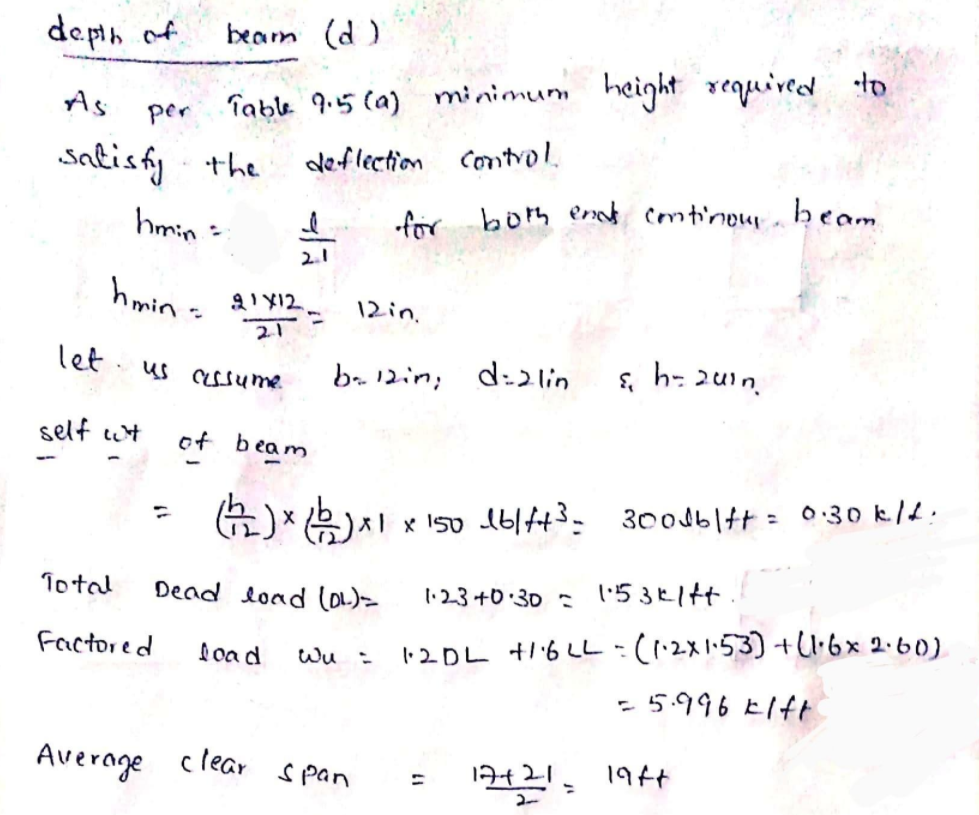 depth of beam (d)
As per Table 9.5(a) minimum height required to
satisfy the deflection control.
hmin = l/21 for both ends continous beam
hmin = 21×12/21 = 12in.
let us assume b=12in; d=21in & h=24in.
self wt of beam
= (h/12)×(b/12)×1 × 150 lb/ft3 = 300lb/ft = 0.30 k/f.
Total Dead load (DL)= 1.23+0.30 = 1.53k/ft.
Factored load wu = 1.2DL +1.6LL = (1.2×1.53)+(1.6×2.60)
= 5.996 k/ft
Average clear span = 17+21/2 = 19ft